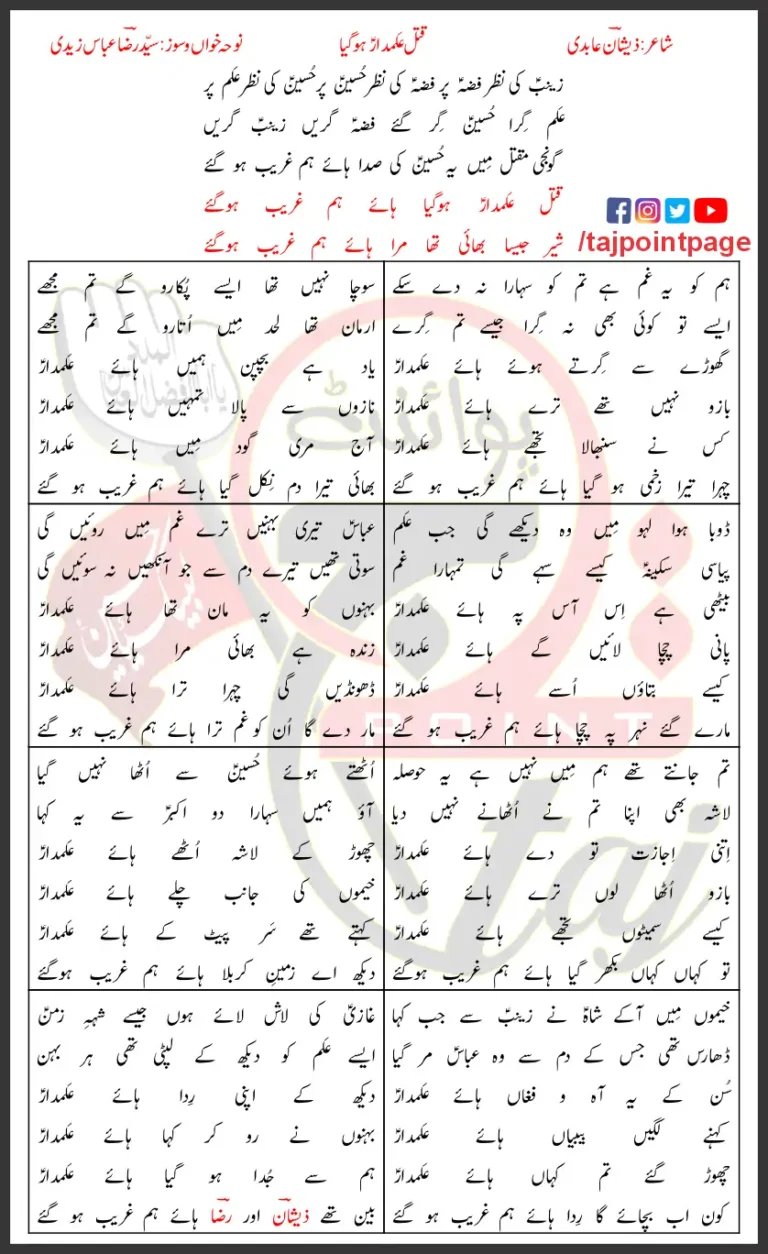 شاعر: ذیشانؔ عابدی
قتل علمدارؑ ہوگیا
نوحہ خواں و سوز: سیّد رضاؔ عباس زیدی
زینبؑ کی نظر فضہؑ پر فضہؑ کی نظر حُسینؑ پر حُسینؑ کی نظر علم پر
علم گِرا حُسینؑ گِر گئے فضہؑ گریں زینبؑ گریں
گونجی مقتل مِیں یہ حُسینؑ کی صدا ہائے ہم غریب ہو گئے
قتل علمدارؑ ہوگیا ہائے ہم غریب ہوگئے
شیر جیسا بھائی تھا مرا ہائے ہم غریب ہوگئے
/tajpointpage
ہم کو یہ غم ہے تم کو سہارا نہ دے سکے
ایسے تو کوئی بھی نہ گِرا جیسے تم گِرے
گھوڑے سے گِرتے ہوئے ہائے علمدارؑ
بازو نہیں تھے ترے ہائے علمدارؑ
کس نے سنبھالا تجھے ہائے علمدارؑ
چہرا تیرا زخمی ہو گیا ہائے ہم غریب ہو گئے
سوچا نہیں تھا ایسے پُکارو گے تم مجھے
ارمان تھا لحد مِیں اُتارو گے تم مجھے
یاد ہے بچپن ہمیں ہائے علمدارؑ
نازوں سے پالا تمہیں ہائے علمدارؑ
آج مری گود مِیں ہائے علمدارؑ
بھائی تیرا دم نِکل گیا ہائے ہم غریب ہو گئے
ڈوبا ہوا لہو مِیں وہ دیکھے گی جب علم
پیاسی سکینہؑ کیسے سہے گی تمہارا غم
بیٹھی ہے اِس آس پہ ہائے علمدارؑ
پانی چچا لائیں گے ہائے علمدارؑ
کیسے بتاؤں اُسے ہائے علمدارؑ
مارے گئے نہر پہ چچا ہائے ہم غریب ہو گئے
عباسؑ تیری بہنیں ترے غم مِیں روئیں گی
سوتی تھیں تیرے دم سے جو آنکھیں نہ سوئیں گی
بہنوں کو یہ مان تھا ہائے علمدارؑ
زندہ ہے بھائی مرا ہائے علمدارؑ
ڈھونڈیں گی چہرا ترا ہائے علمدارؑ
مار دے گا اُن کو غم ترا ہائے ہم غریب ہو گئے
تم جانتے تھے ہم مِیں نہیں ہے یہ حوصلہ
لاشہ بھی اپنا تم نے اُٹھانے نہیں دیا
اِتنی اِجازت تو دے ہائے علمدارؑ
بازو اُٹھا لوں ترے ہائے علمدارؑ
کیسے سمیٹوں تجھے ہائے علمدارؑ
تو کہاں کہاں بکھر گیا ہائے ہم غریب ہوگئے
اُٹھتے ہوئے حُسینؑ سے اُٹھا نہیں گیا
آؤ ہمیں سہارا دو اکبرؑ سے یہ کہا
چھوڑ کے لاشہ اُٹھے ہائے علمدارؑ
خیموں کی جانب چلے ہائے علمدارؑ
کہتے تھے سَر پیٹ کے ہائے علمدارؑ
دیکھ اے زمینِ کربلا ہائے ہم غریب ہوگئے
خیموں مِیں آکے شاہؑ نے زینبؑ سے جب کہا
ڈھارس تھی جس کے دم سے وہ عباسؑ مر گیا
سُن کے یہ آہ و فغاں ہائے علمدارؑ
کہنے لگیں بیبیاں ہائے علمدارؑ
چھوڑ گئے تم کہاں ہائے علمدارؑ
کون اب بچائے گا رِدا ہائے ہم غریب ہو گئے
غازیؑ کی لاش لائے ہوں جیسے شہہِ زمنؑ
ایسے علم کو دیکھ کے لپٹی تھی ہر بہن
دیکھ کے اپنی رِدا ہائے علمدارؑ
بہنوں نے رو کر کہا ہائے علمدارؑ
ہم سے جُدا ہو گیا ہائے علمدارؑ
بین تھے ذیشانؔ اور رضاؔ ہائے ہم غریب ہو گئے
پوائنٹ
POINT
taj